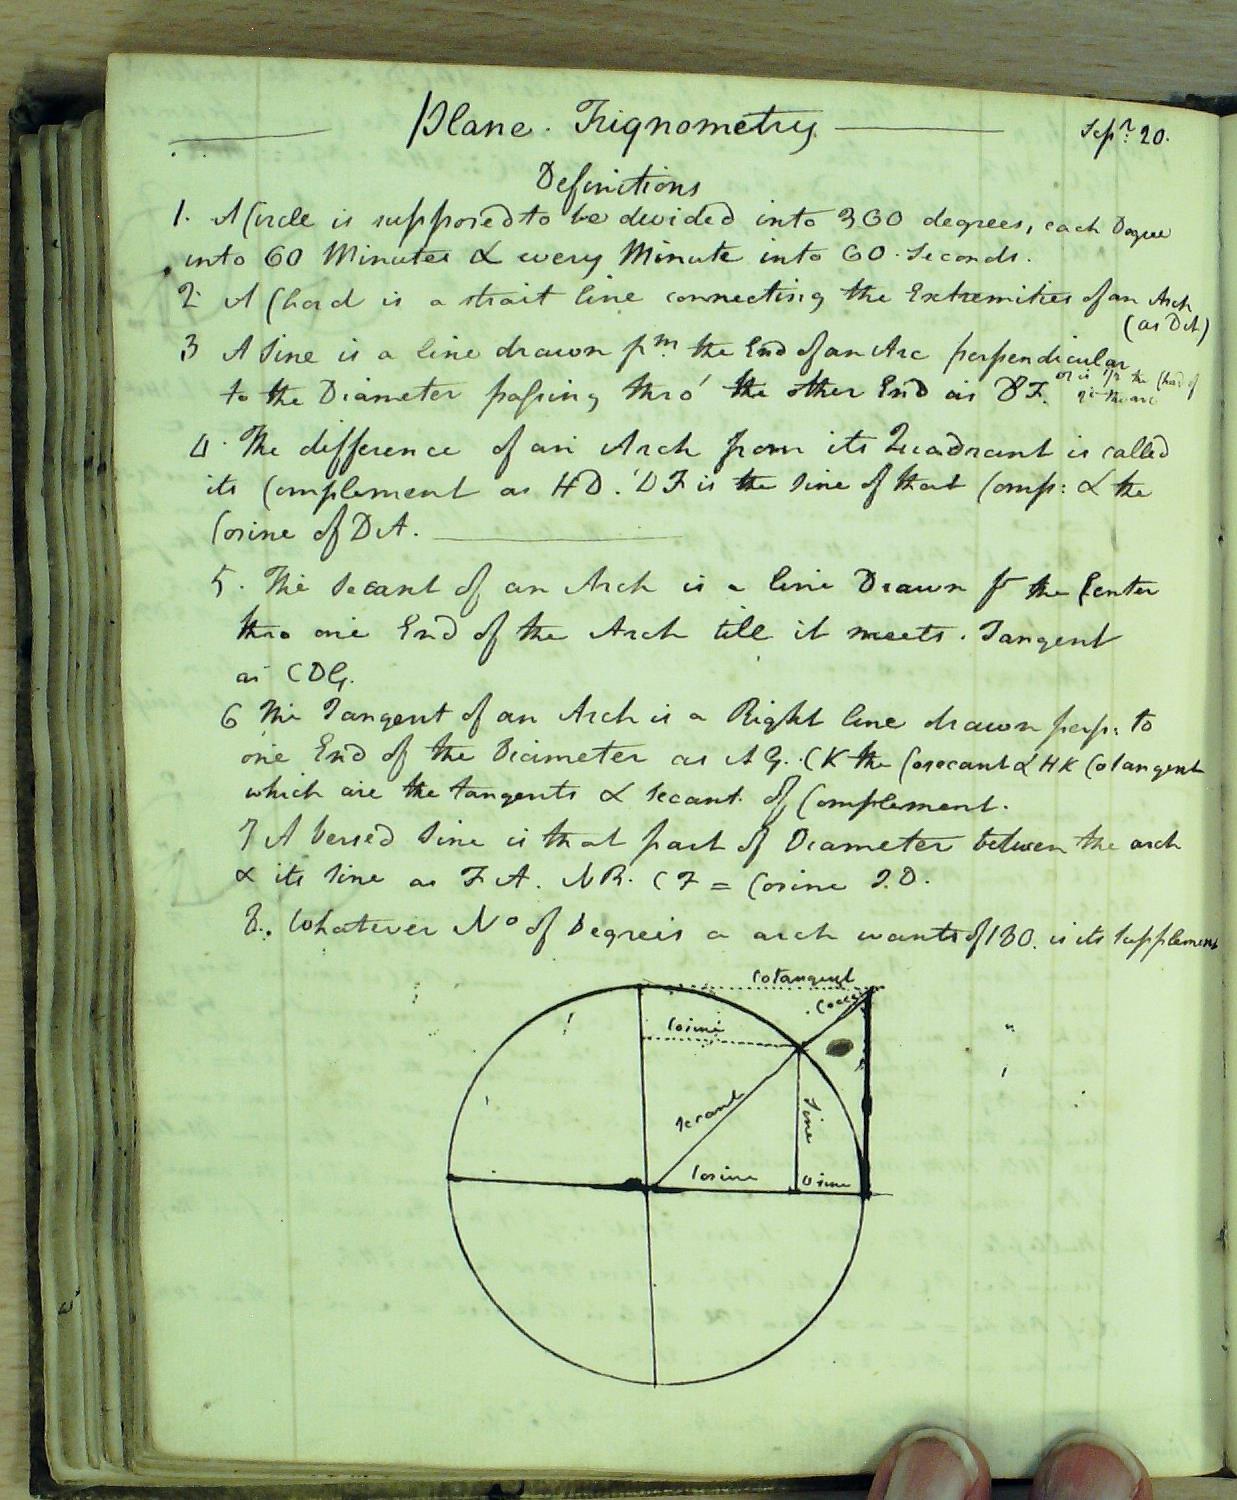 Plane. Trignometry Sepr. 20.
Definitions
1. A Circle is supposed to be devided into 360 degrees, each Degree
into 60 Minutes & every Minute into 60 Seconds.
2 A Chord is a strait line connecting the Extremities of an Arch
(as DA)
3 A Sine is a line drawn fm. the End of an Arc perpendicular
to the Diameter passing thro' the other End as DF. or is 1/2 the Chord of
the arc
4. The difference of an Arch from its Quadrant is called
its Complement as HD. DI is the Sine of that Comp: & the
Cosine of DA.
5. The Secant of an Arch is a line Drawn f the Center
thro one End of the Arch till it meets. Tangent
as CDG.
6 The Tangent of an Arch is a Right line drawn perp: to
one End of the Diameter as AG. CK the Cosecant & HK Cotangent
which are the tangents & secant of Complement.
7 A Versed Sine is that part of Diameter between the arch
& its Sine as FA. NB. CF = Cosine I.D.
8. Whatever No of Degrees a arch wants of 180. is its Supplement
Cotangent
Cosine
Secant
Sine
Cosine